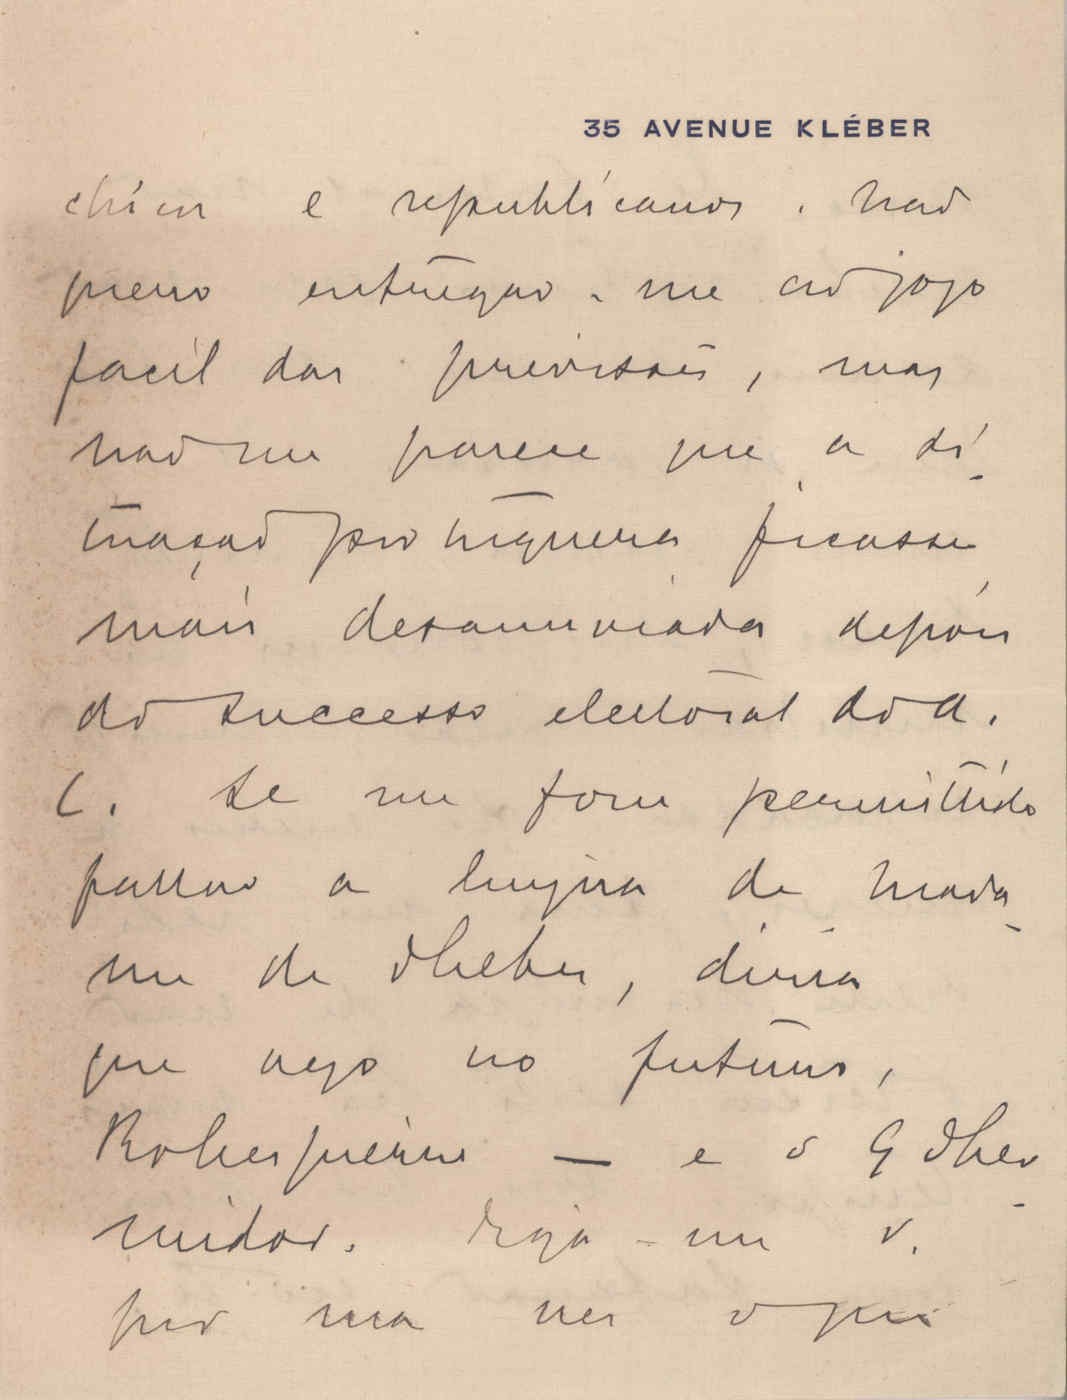 35 AVENUE KLÉBER
chicos e republicanos. Nao
quero entregar-me ao jogo
facil das previsões, mas
nao me parece que a si-
tuaçao portugueza ficasse
mais desanuviada depois
do successo eleitoral do A.
C. Se me fora permittido
passar a lingua de Mada-
me de Thebes, diria
que vejo no futuro,
Robespierre — e o 9 Ther-
midor. Diga-me V.
por sua vez o que